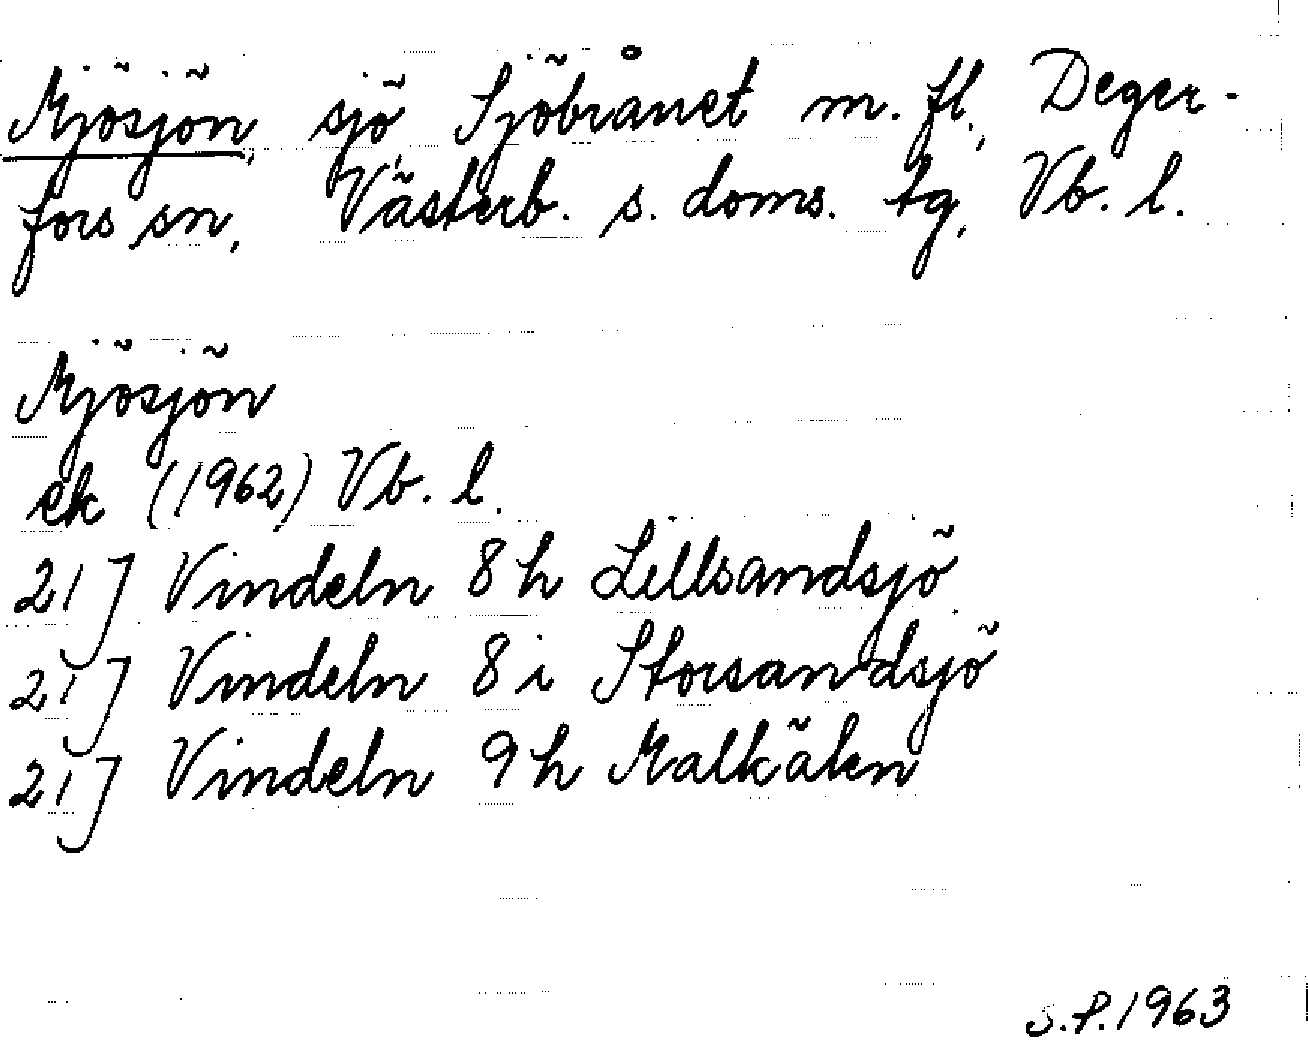 Mjösjön, sjö Sjöbrånet m. fl., Deger-
fors sn, Västerb. s. doms. tg, Vb. l.
Mjösjön
ek (1962) Vb. l.
21J Vindeln 8h Lillsandsjö
21J Vindeln 8i Storsandsjö
21J Vindeln 9h Malkälen
S.P. 1963